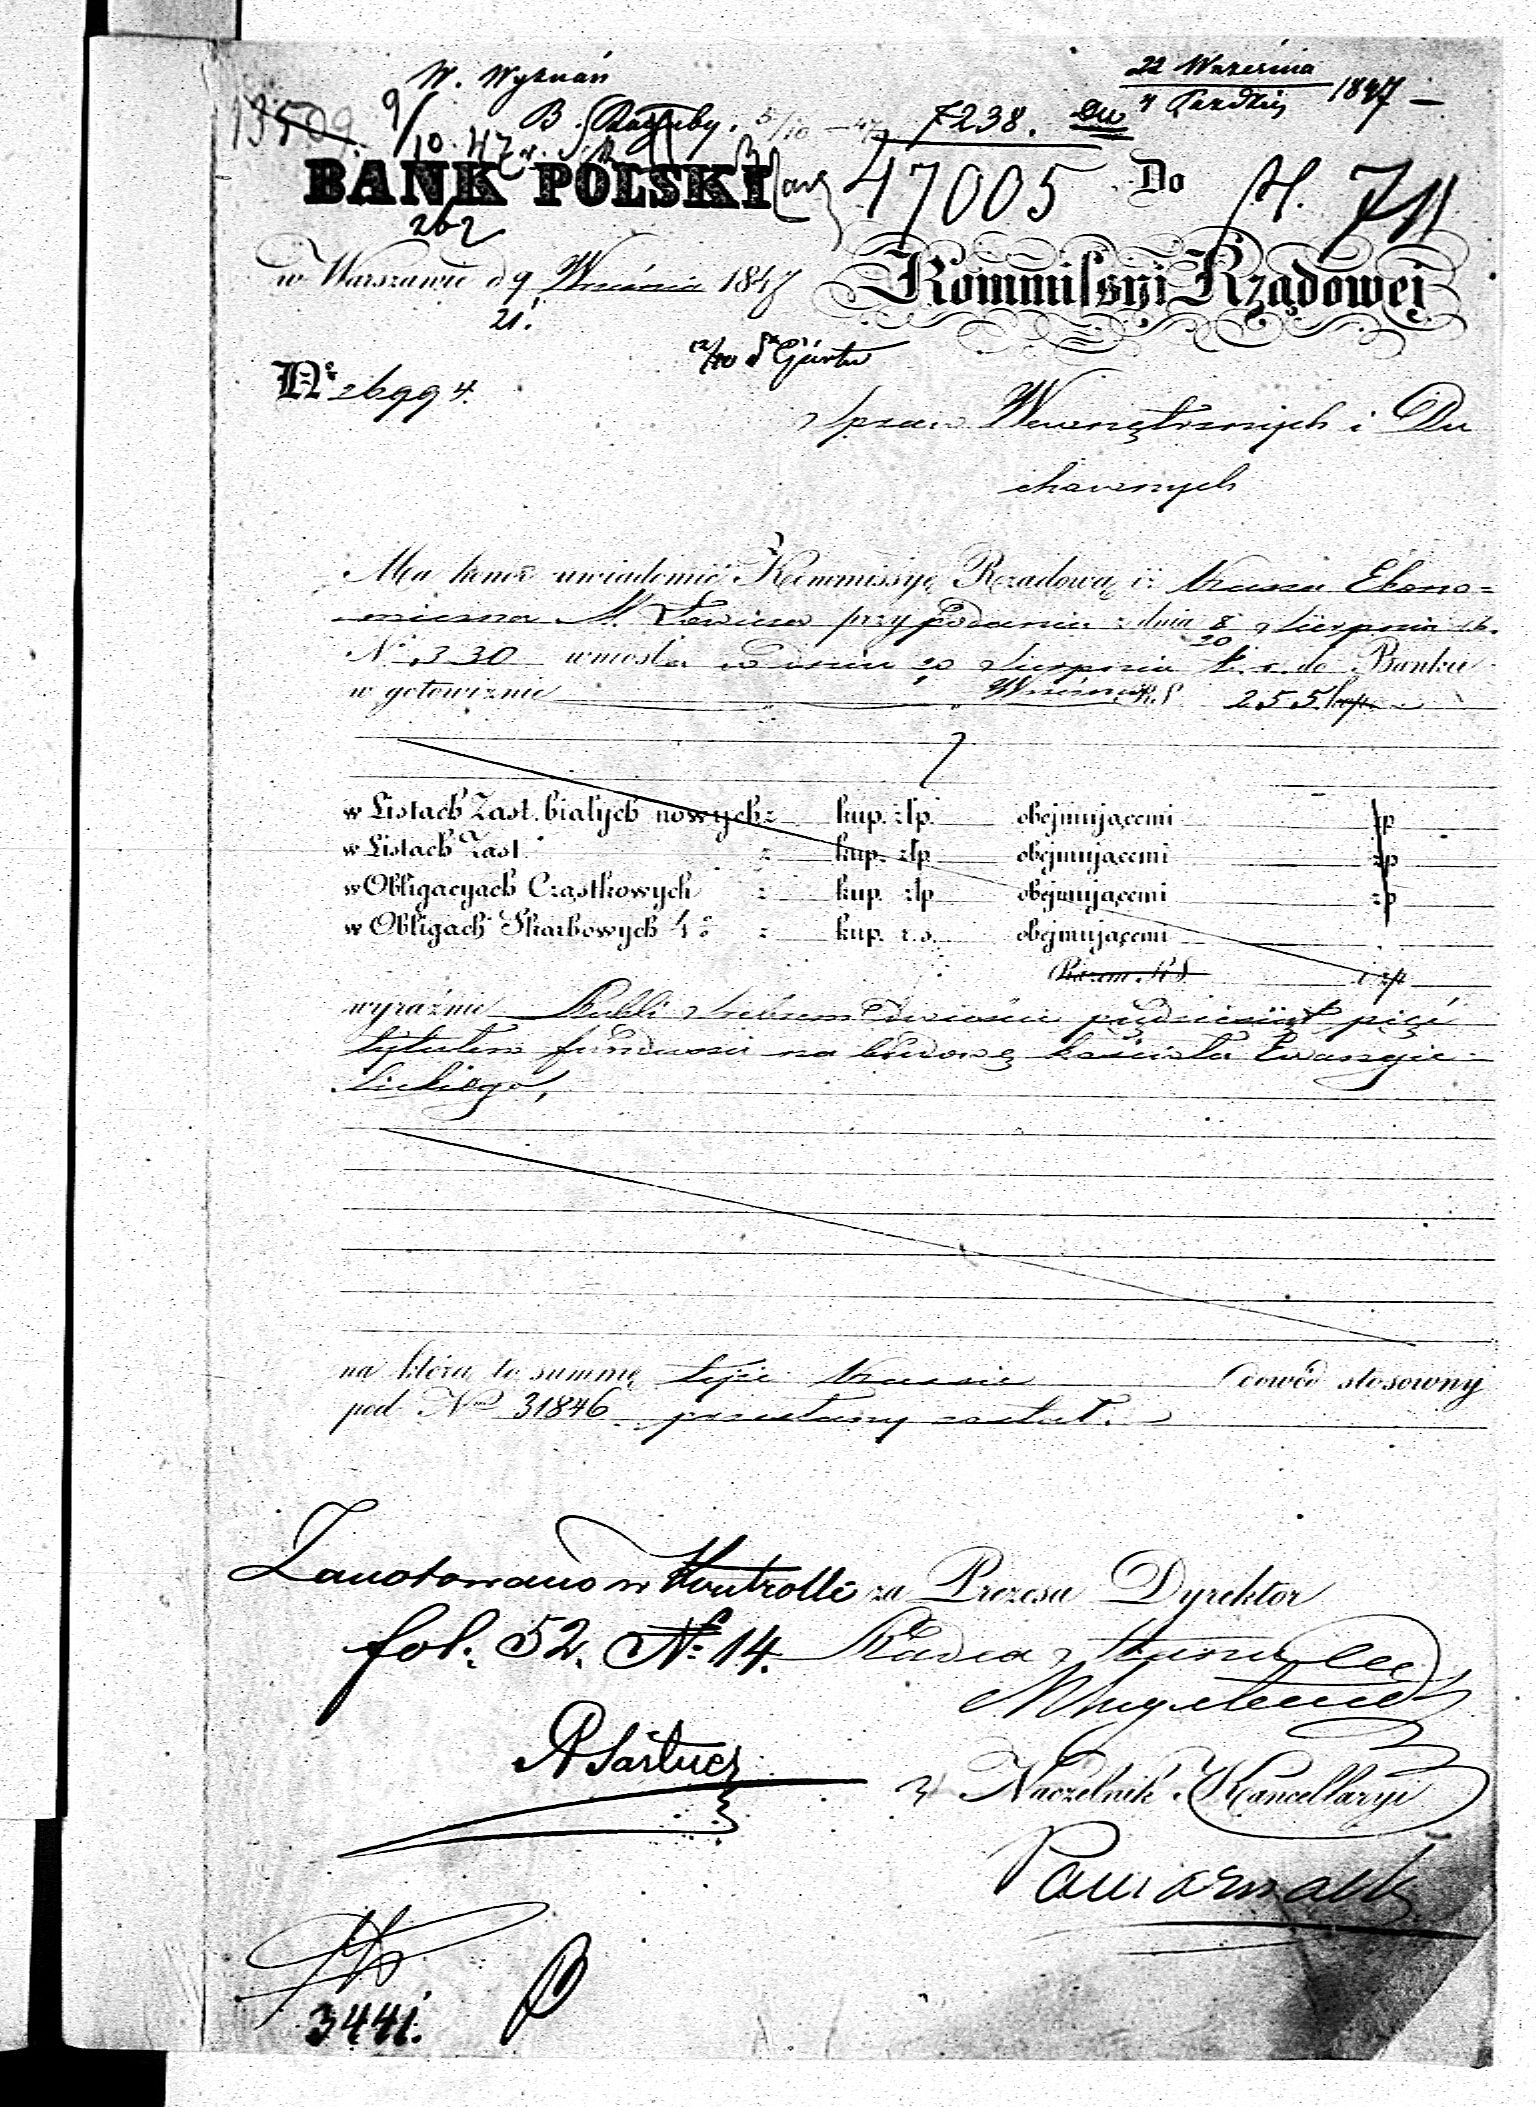 W. Wyznań
22 Września
4 Paźdz 1847
13509 9/10.47 B. 5/10 - 47 7238. Du
BANK POLSKI 47005 Do H. 711
262
w Warszawie d 9 Września 1847 Kommissyi Rządowej
21.
12/10
Nº 26994.
Spraw Wewnętrznych i Du
chownych
Ma honor uwiadomić Kommissyę Rządową iż Kassa Ekono=
miczna M. Łowicza przy podaniu z dnia 8 Sierpnia t.b.
20
Nº 330 wniosła w dniu 20 Sierpnia r. do Banku
w gotowiźnie Września R.S. 255 kop.
w Listach Zast. białych nowych z kup. złp. obejmującemi zp
w Listach Zast. z kup. złp. obejmującemi zp
w Obligacyach Cząstkowych z kup. złp. obejmującemi zp
w Obligach Skarbowych 4% z kup. r.s. obejmującemi
Razem R.S. i zp
wyraźnie Rubli Srebrem Dwieście pięćdziesiąt pięć
tytułem funduszu na budowę kościoła Ewangie-
lickiego,
na którą to summę tejże Kassie dowód stosowny
pod Nem 31846 przesłany został.
Zanotowano w Kontrolli za Prezesa Dyrektor
fol. 52. Nº 14. Radca Stanu
Naczelnik Kancellaryi
3441.